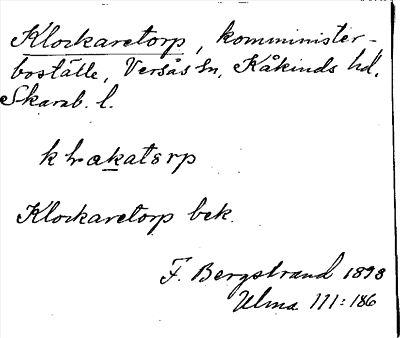 Klockaretorp, komminister-
boställe, Versås sn, Kåkinds hd,
Skarab. l.
Klockaretorp bek.
F. Bergstrand 1898
Ulma 111:186